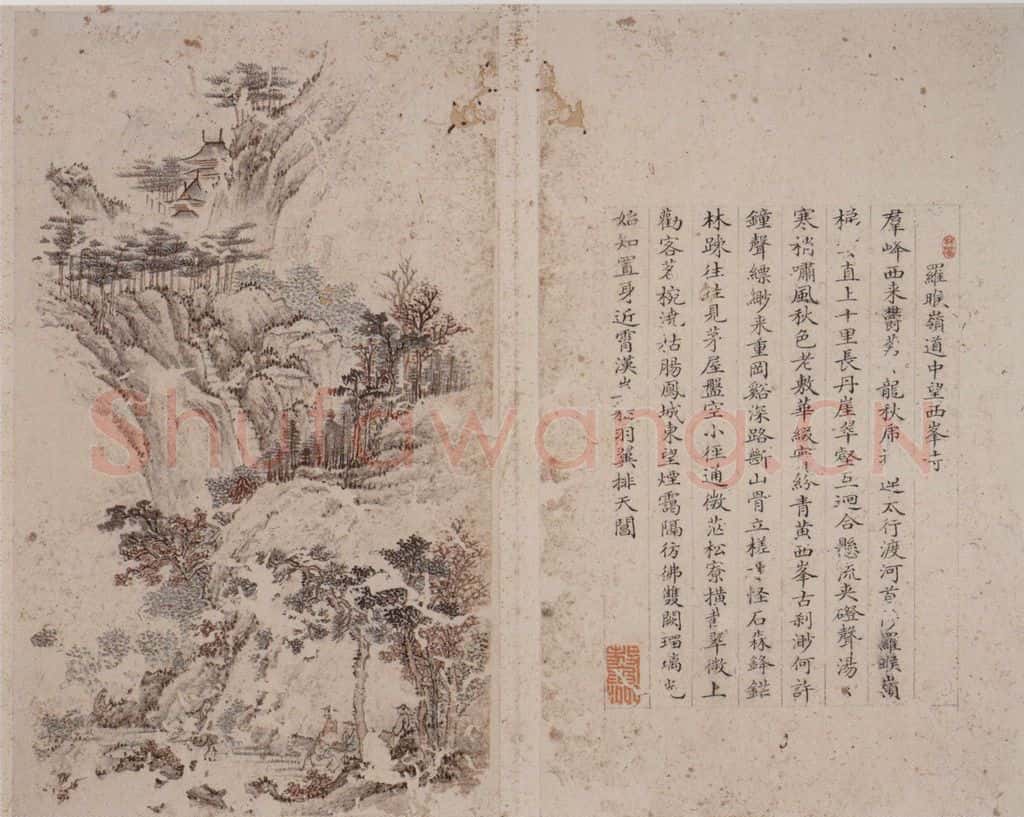 羅睺嶺道中望西峯寺
羣峰西来鬱 龍秋 太行渡河 羅睺嶺
梯 直上十里長丹崖翠壑互洄合懸流夾磴聲湯
寒梢嘯風秋色老敷華綴實紛青黄西峯古刹渺何許
鐘聲縹緲来重岡谿深路斷山骨立槎 怪石森鋒鋩
林踈往往見茅屋盤空小徑通微茫松寮横 翠微上
勸客茗椀澆枯腸鳳城東望煙靄隔彷彿雙闕瑠璃光
始知置身近霄漢 羽翼排天閶
Shufawang.CN